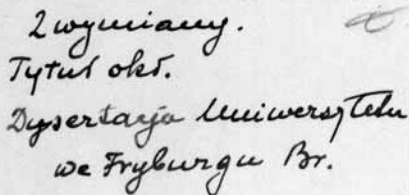 Z wymiany.
Tytuł okł.
Dysertacja Uniwersytetu
we Fryburgu Br.